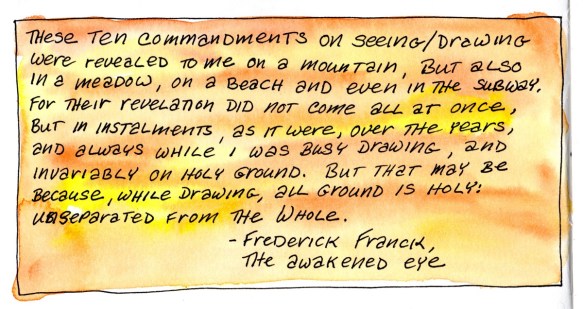 These Ten Commandments on Seeing/Drawing
were revealed to me on a mountain, but also
in a meadow, on a beach and even in the subway.
For their revelation did not come all at once,
but in instalments, as it were, over the years,
and always while I was busy drawing, and
invariably on holy ground. But that may be
because, while drawing, all ground is holy:
unseparated from the Whole.
- Frederick Franck,
The Awakened Eye